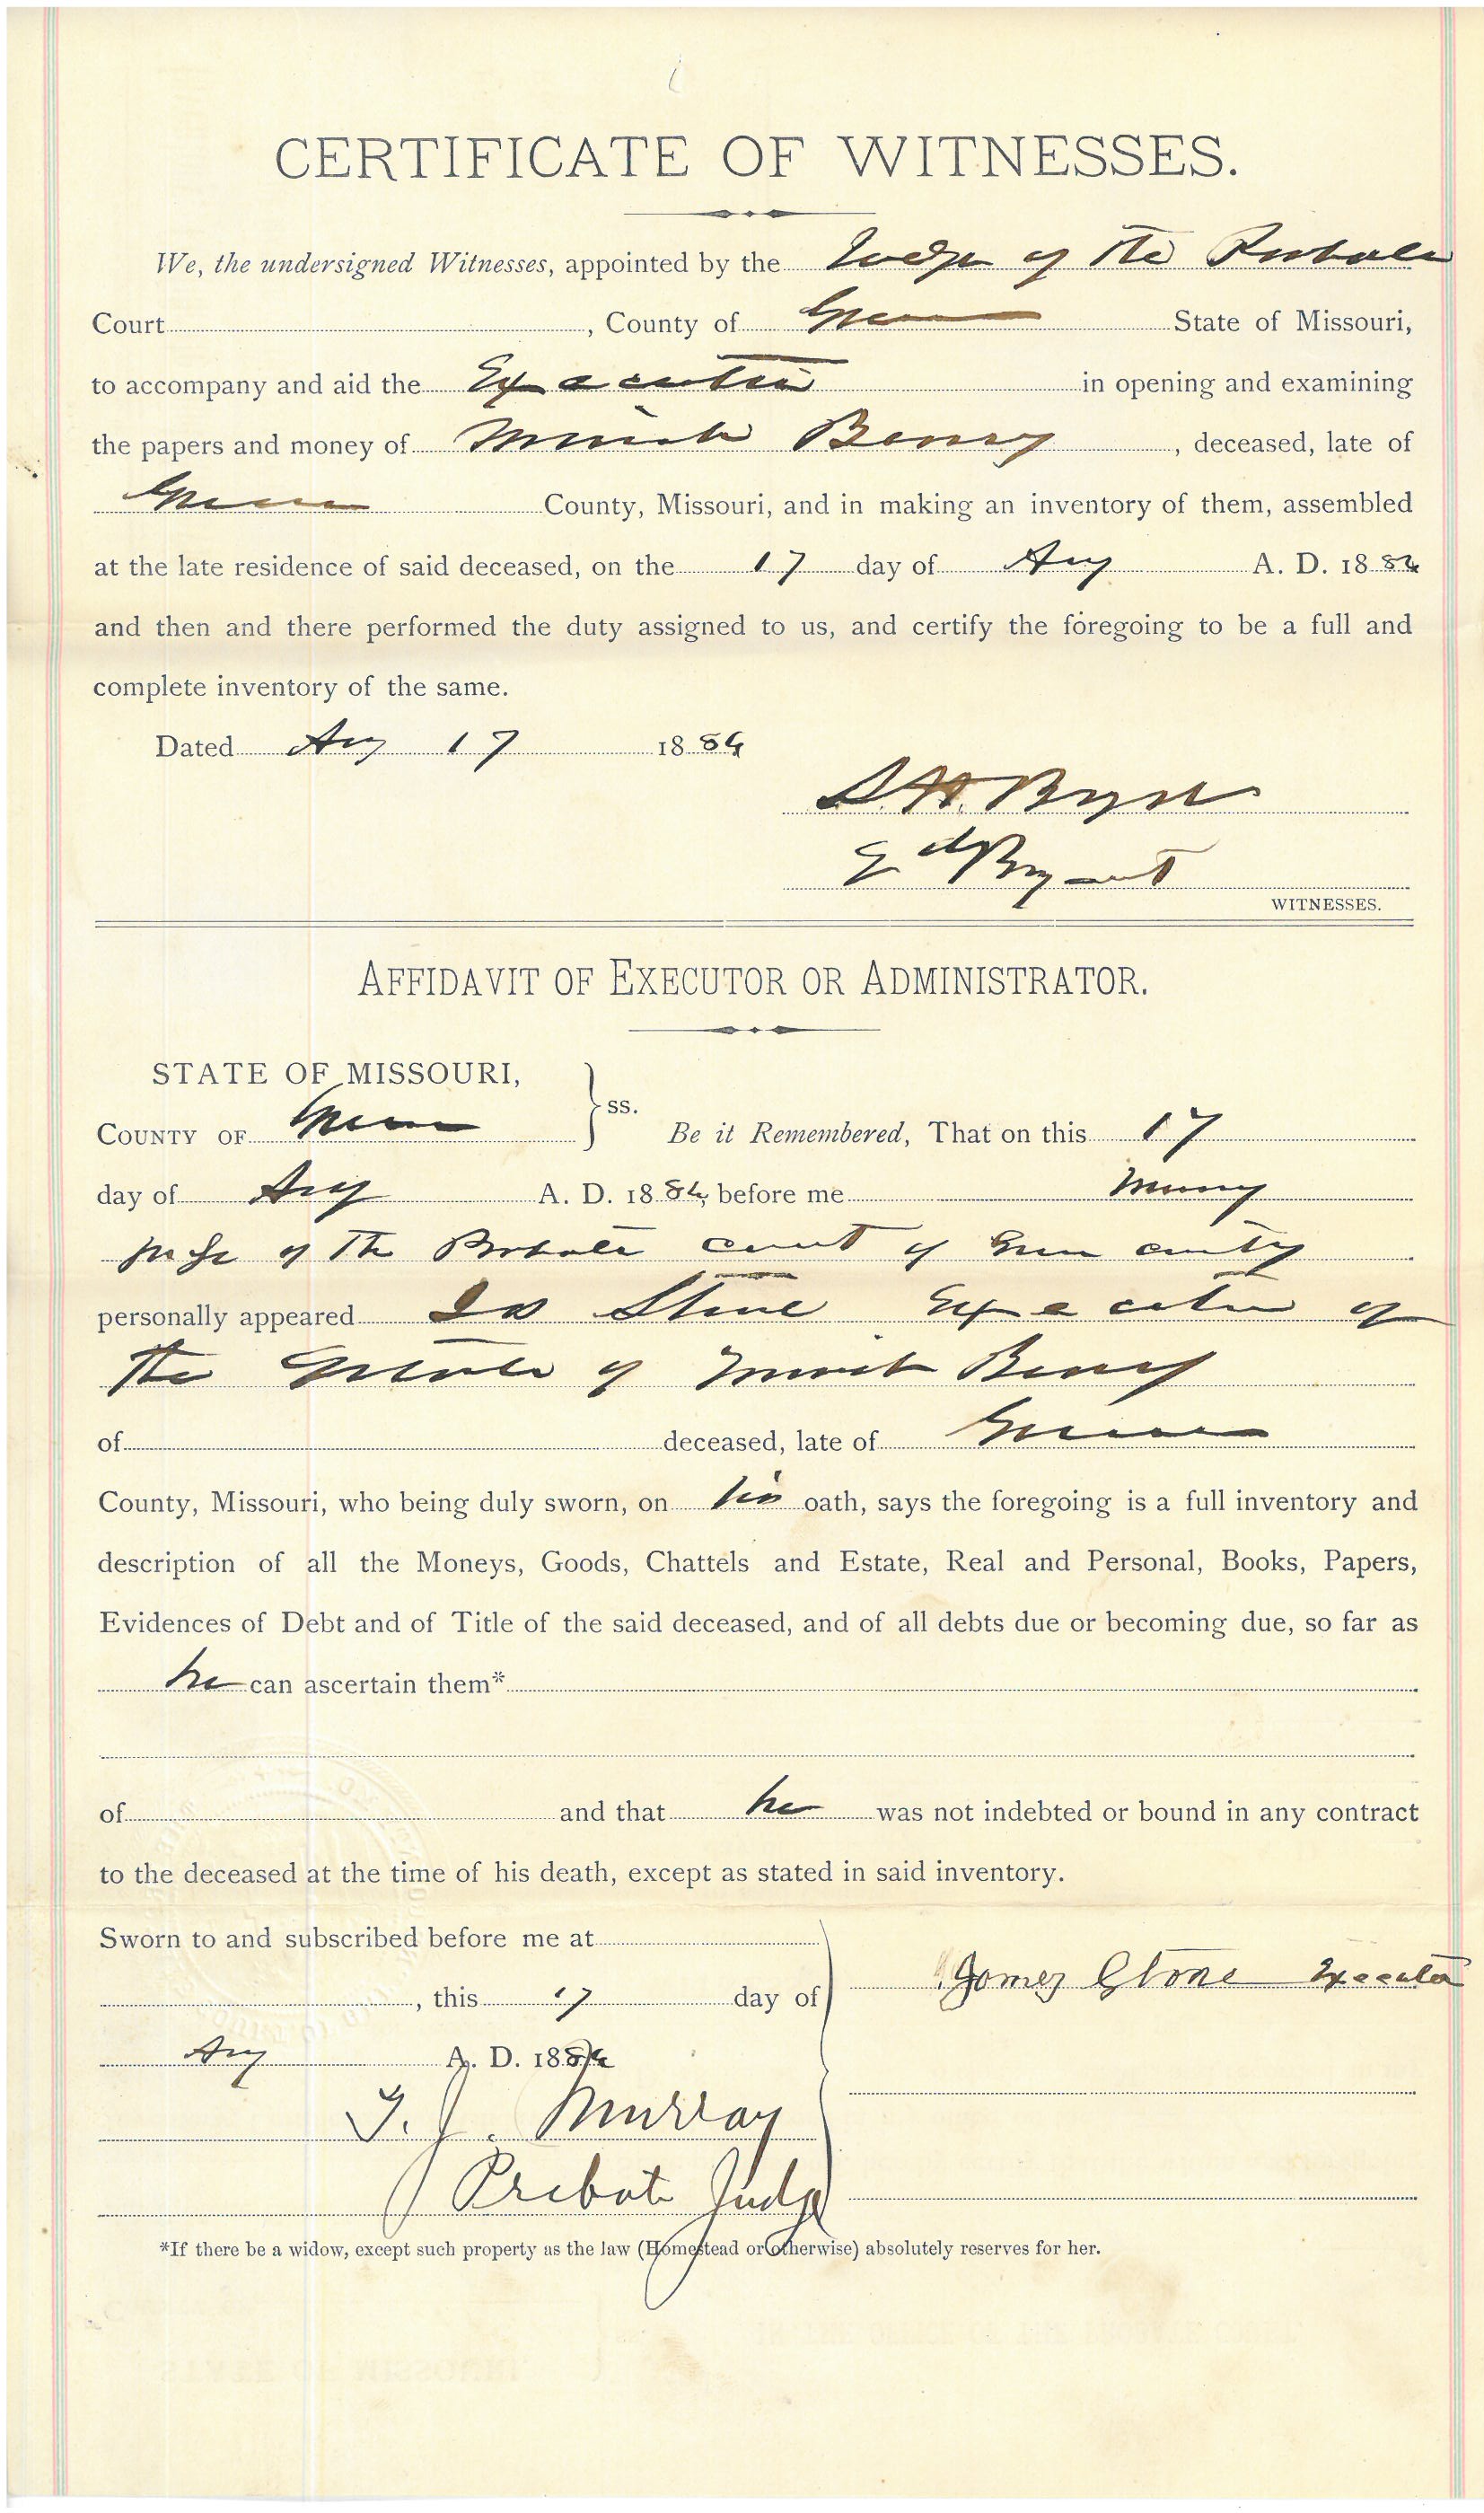 CERTIFICATE OF WITNESSES.
We, the undersigned Witnesses, appointed by the Judge of the Probate
Court, County of Green State of Missouri,
to accompany and aid the Executor in opening and examining
the papers and money of Berry, deceased, late of
Green County, Missouri, and in making an inventory of them, assembled
at the late residence of said deceased, on the 17 day of Aug A. D. 1884
and then and there performed the duty assigned to us, and certify the foregoing to be a full and
complete inventory of the same.
Dated Aug 17 1884
Ed Bryant
WITNESSES.
AFFIDAVIT OF EXECUTOR OR ADMINISTRATOR.
STATE OF MISSOURI,
COUNTY OF Green } ss. Be it Remembered, That on this 17
day of Aug A. D. 1884, before me Murry
Judge of the Probate court of Green county
personally appeared Jas Stone Executor of
the Estate of Berry
of deceased, late of Green
County, Missouri, who being duly sworn, on his oath, says the foregoing is a full inventory and
description of all the Moneys, Goods, Chattels and Estate, Real and Personal, Books, Papers,
Evidences of Debt and of Title of the said deceased, and of all debts due or becoming due, so far as
he can ascertain them*
of and that he was not indebted or bound in any contract
to the deceased at the time of his death, except as stated in said inventory.
Sworn to and subscribed before me at
James Stone Executor
, this 17 day of
Aug A. D. 1884
T. J. Murray
Probate Judge
*If there be a widow, except such property as the law (Homestead or otherwise) absolutely reserves for her.